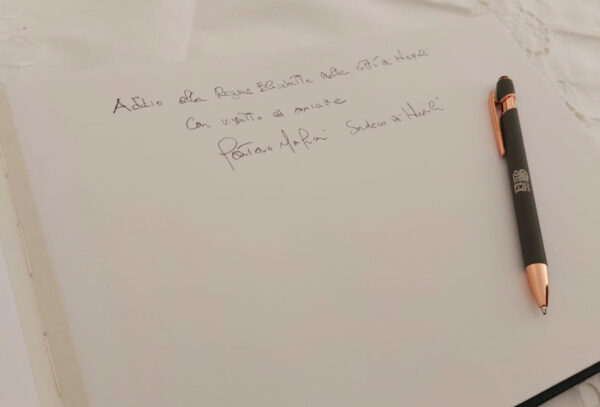 Addio alla Regina Elisabetta dalla città di Napoli
Con rispetto ed amicizia
Gaetano Manfredi Sindaco di Napoli